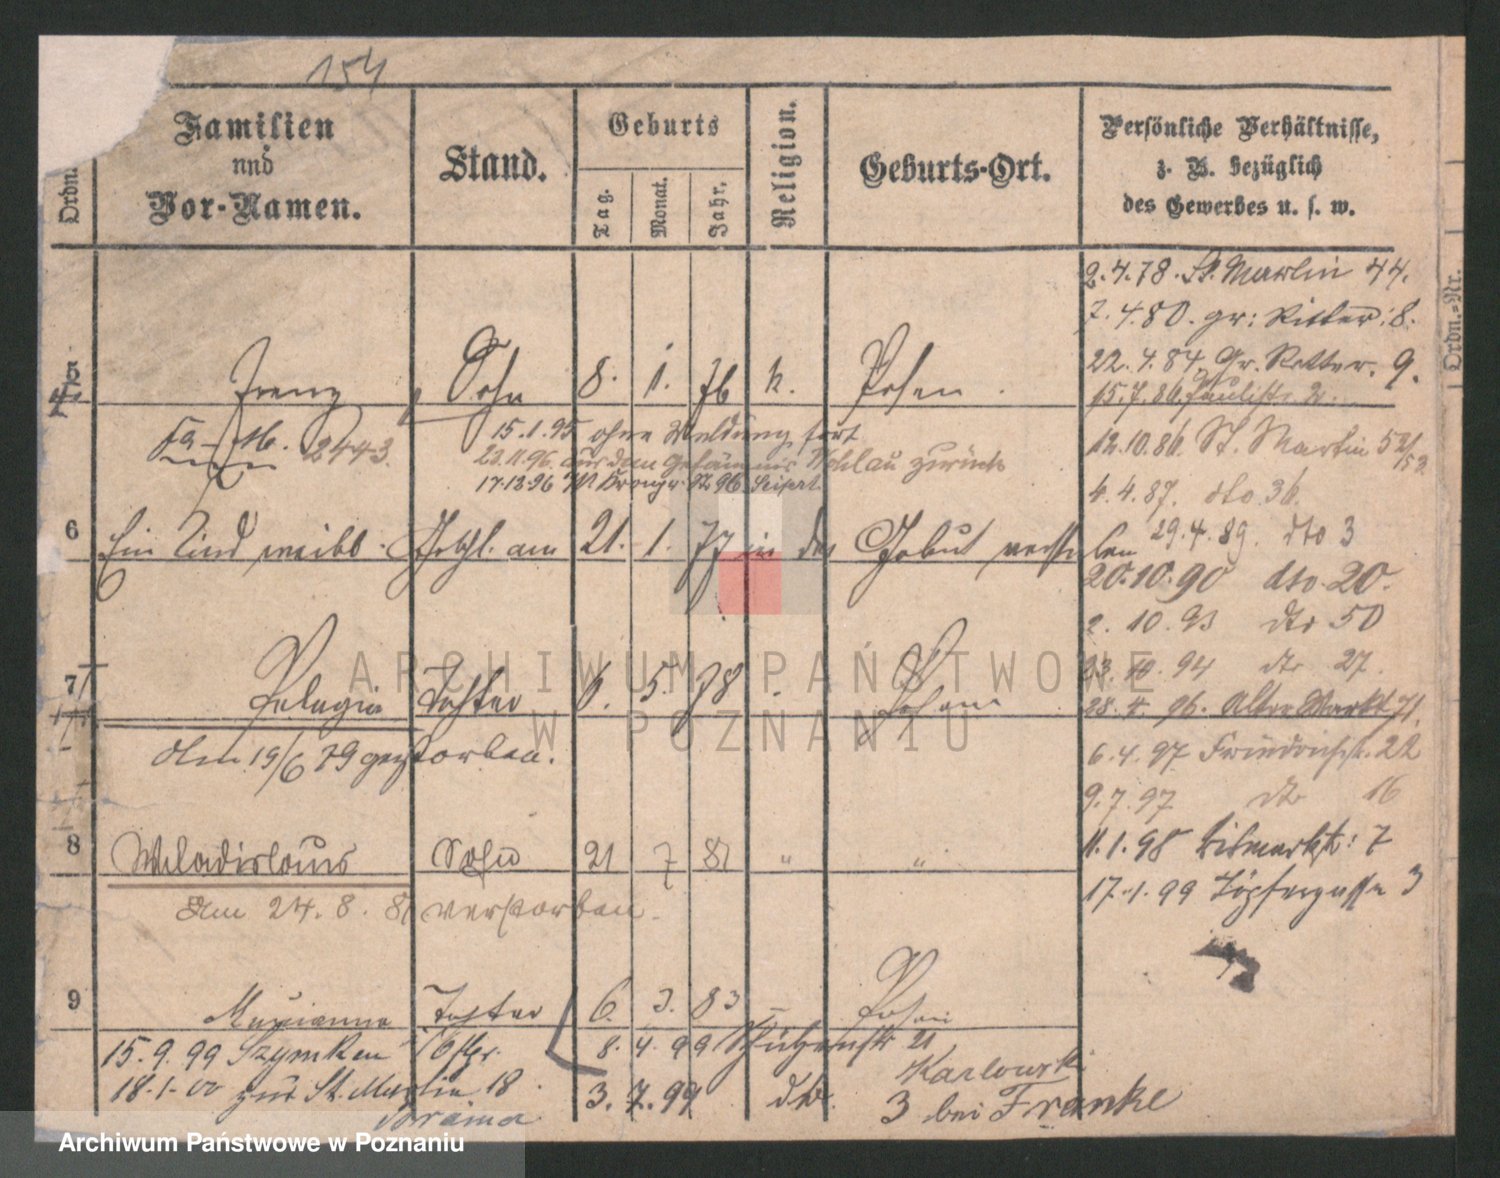 154
Ordn.
Familien
und
Vor-Namen.
Stand.
Geburts
Tag.
Monat.
Jahr.
Religion.
Geburts-Ort.
Persönliche Verhältnisse,
z. B. bezüglich
des Gewerbes u. s. w.
Ordn.-Nr.
2.4.78. St. Martin 44.
7.4.80. gr: Ritter: 8.
22.4.84. Gr. Ritter. 9.
Franz Sohn 8. 1. 76 k. Posen.
15.7.86. Paulist. 2.
2443.
15.1.95 ohne Meldung fort
23.11.96. aus dem Gefängnis Wohlau zurück
17.12.96 96 Seifert
12.10.86. St. Martin 52/
152
4.4.87. dto 36.
6 Ein Kind weibl. Geschl. am 21. 1. 77 in der Geburt verstorben
29.4.89. dto 3
20.10.90 dto. 20.
2. 10. 93 dto 50
23. 10. 94 dto 27
7 Pelagia Tochter 6. 5. 78 Posen
28. 4. 96. Alter Markt 71.
den 19/6 79 gestorben.
6.4.97 Friedrichstr. 22
9.7.97 dto 16
8 Wladislaus Sohn 21 7 81 " "
11.1.98 Bismarkstr: 7
Am 24. 8. 81 verstorben.
17.1.99 Töpfergasse 3
9 Marianna Tochter 6. 3. 83 – Posen
15.9.99 Szymken
8. 4. 99 Schützenstr 21
Karlowski
18.1.00 zur St. Martin 18.
3. 7. 99 dto. 3 bei Franke
Brama
ARCHIWUM PAŃSTWOWE
W POZNANIU
Archiwum Państwowe w Poznaniu